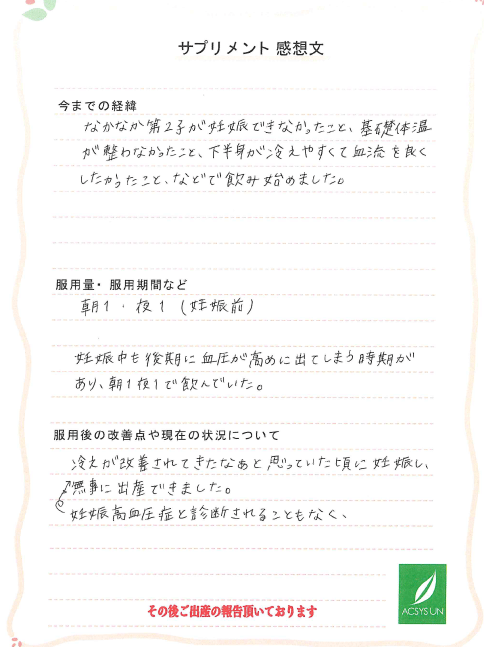 サプリメント 感想文
今までの経緯
なかなか第2子が妊娠できなかったこと、基礎体温
が整わなかったこと、下半身が冷えやすくて血流を良く
したかったこと、などで飲み始めました。
服用量・服用期間など
朝1・夜1（妊娠前）
妊娠中も後期に血圧が高めに出てしまう時期が
あり、朝1夜1で飲んでいた。
服用後の改善点や現在の状況について
冷えが改善されてきたなあと思っていた頃に妊娠し、
無事に出産できました。
妊娠高血圧症と診断されることもなく、
その後ご出産の報告頂いております
ACSYSUN